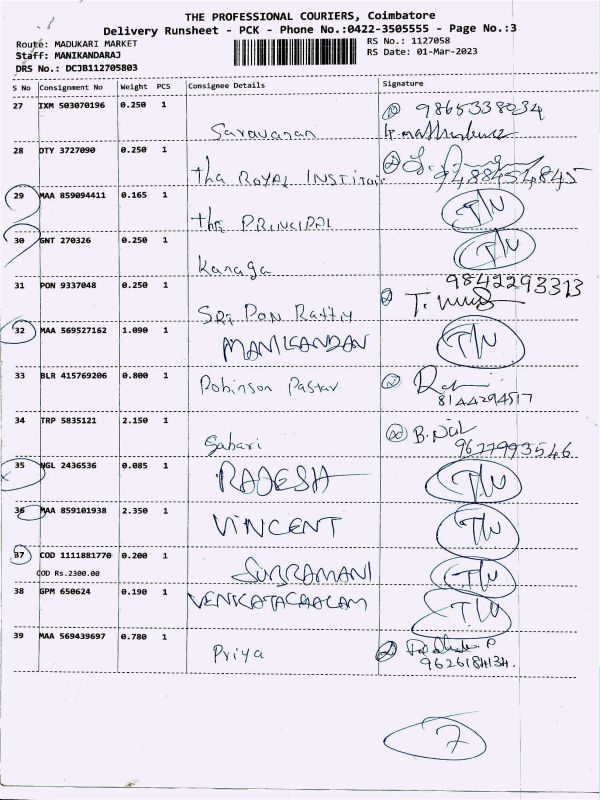 THE PROFESSIONAL COURIERS, Coimbatore
Delivery Runsheet - PCK - Phone No.:0422-3505555 - Page No.:3
Route: MADUKARI MARKET
RS No.: 1127058
Staff: MANIKANDARAJ
RS Date: 01-Mar-2023
DRS No.: DCJB112705803
S No Consignment No Weight PCS Consignee Details Signature
27 IXM 503070196 0.250 1 Saravanan 9865338034
28 DTY 3727090 0.250 1 the ROYAL INSTITUT 9488454845
29 MAA 859094411 0.165 1 the PRINCIPAL T/N
30 GNT 270326 0.250 1 Kanaga T/N
31 PON 9337048 0.250 1 SRI PON Ratty 9842293313
32 MAA 569527162 1.090 1 MANIKANDAN T/N
33 BLR 415769206 0.800 1 Robinson Pastar 8144294517
34 TRP 5835121 2.150 1 Sabari 9677993546
35 NGL 2436536 0.085 1 RAJESH T/N
36 MAA 859101938 2.350 1 VINCENT T/N
37 COD 1111881770 0.200 1 SUBRAMANI T/N
COD Rs.2300.00
38 GPM 650624 0.190 1 VENKATACHALAM T/N
39 MAA 569439697 0.780 1 Priya
7